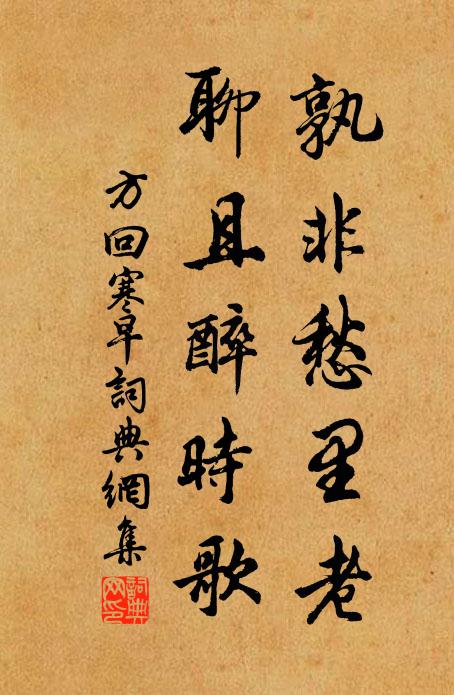 孰非愁里老
聊且醉時歌
方回寒早詞典網集
詞典网印